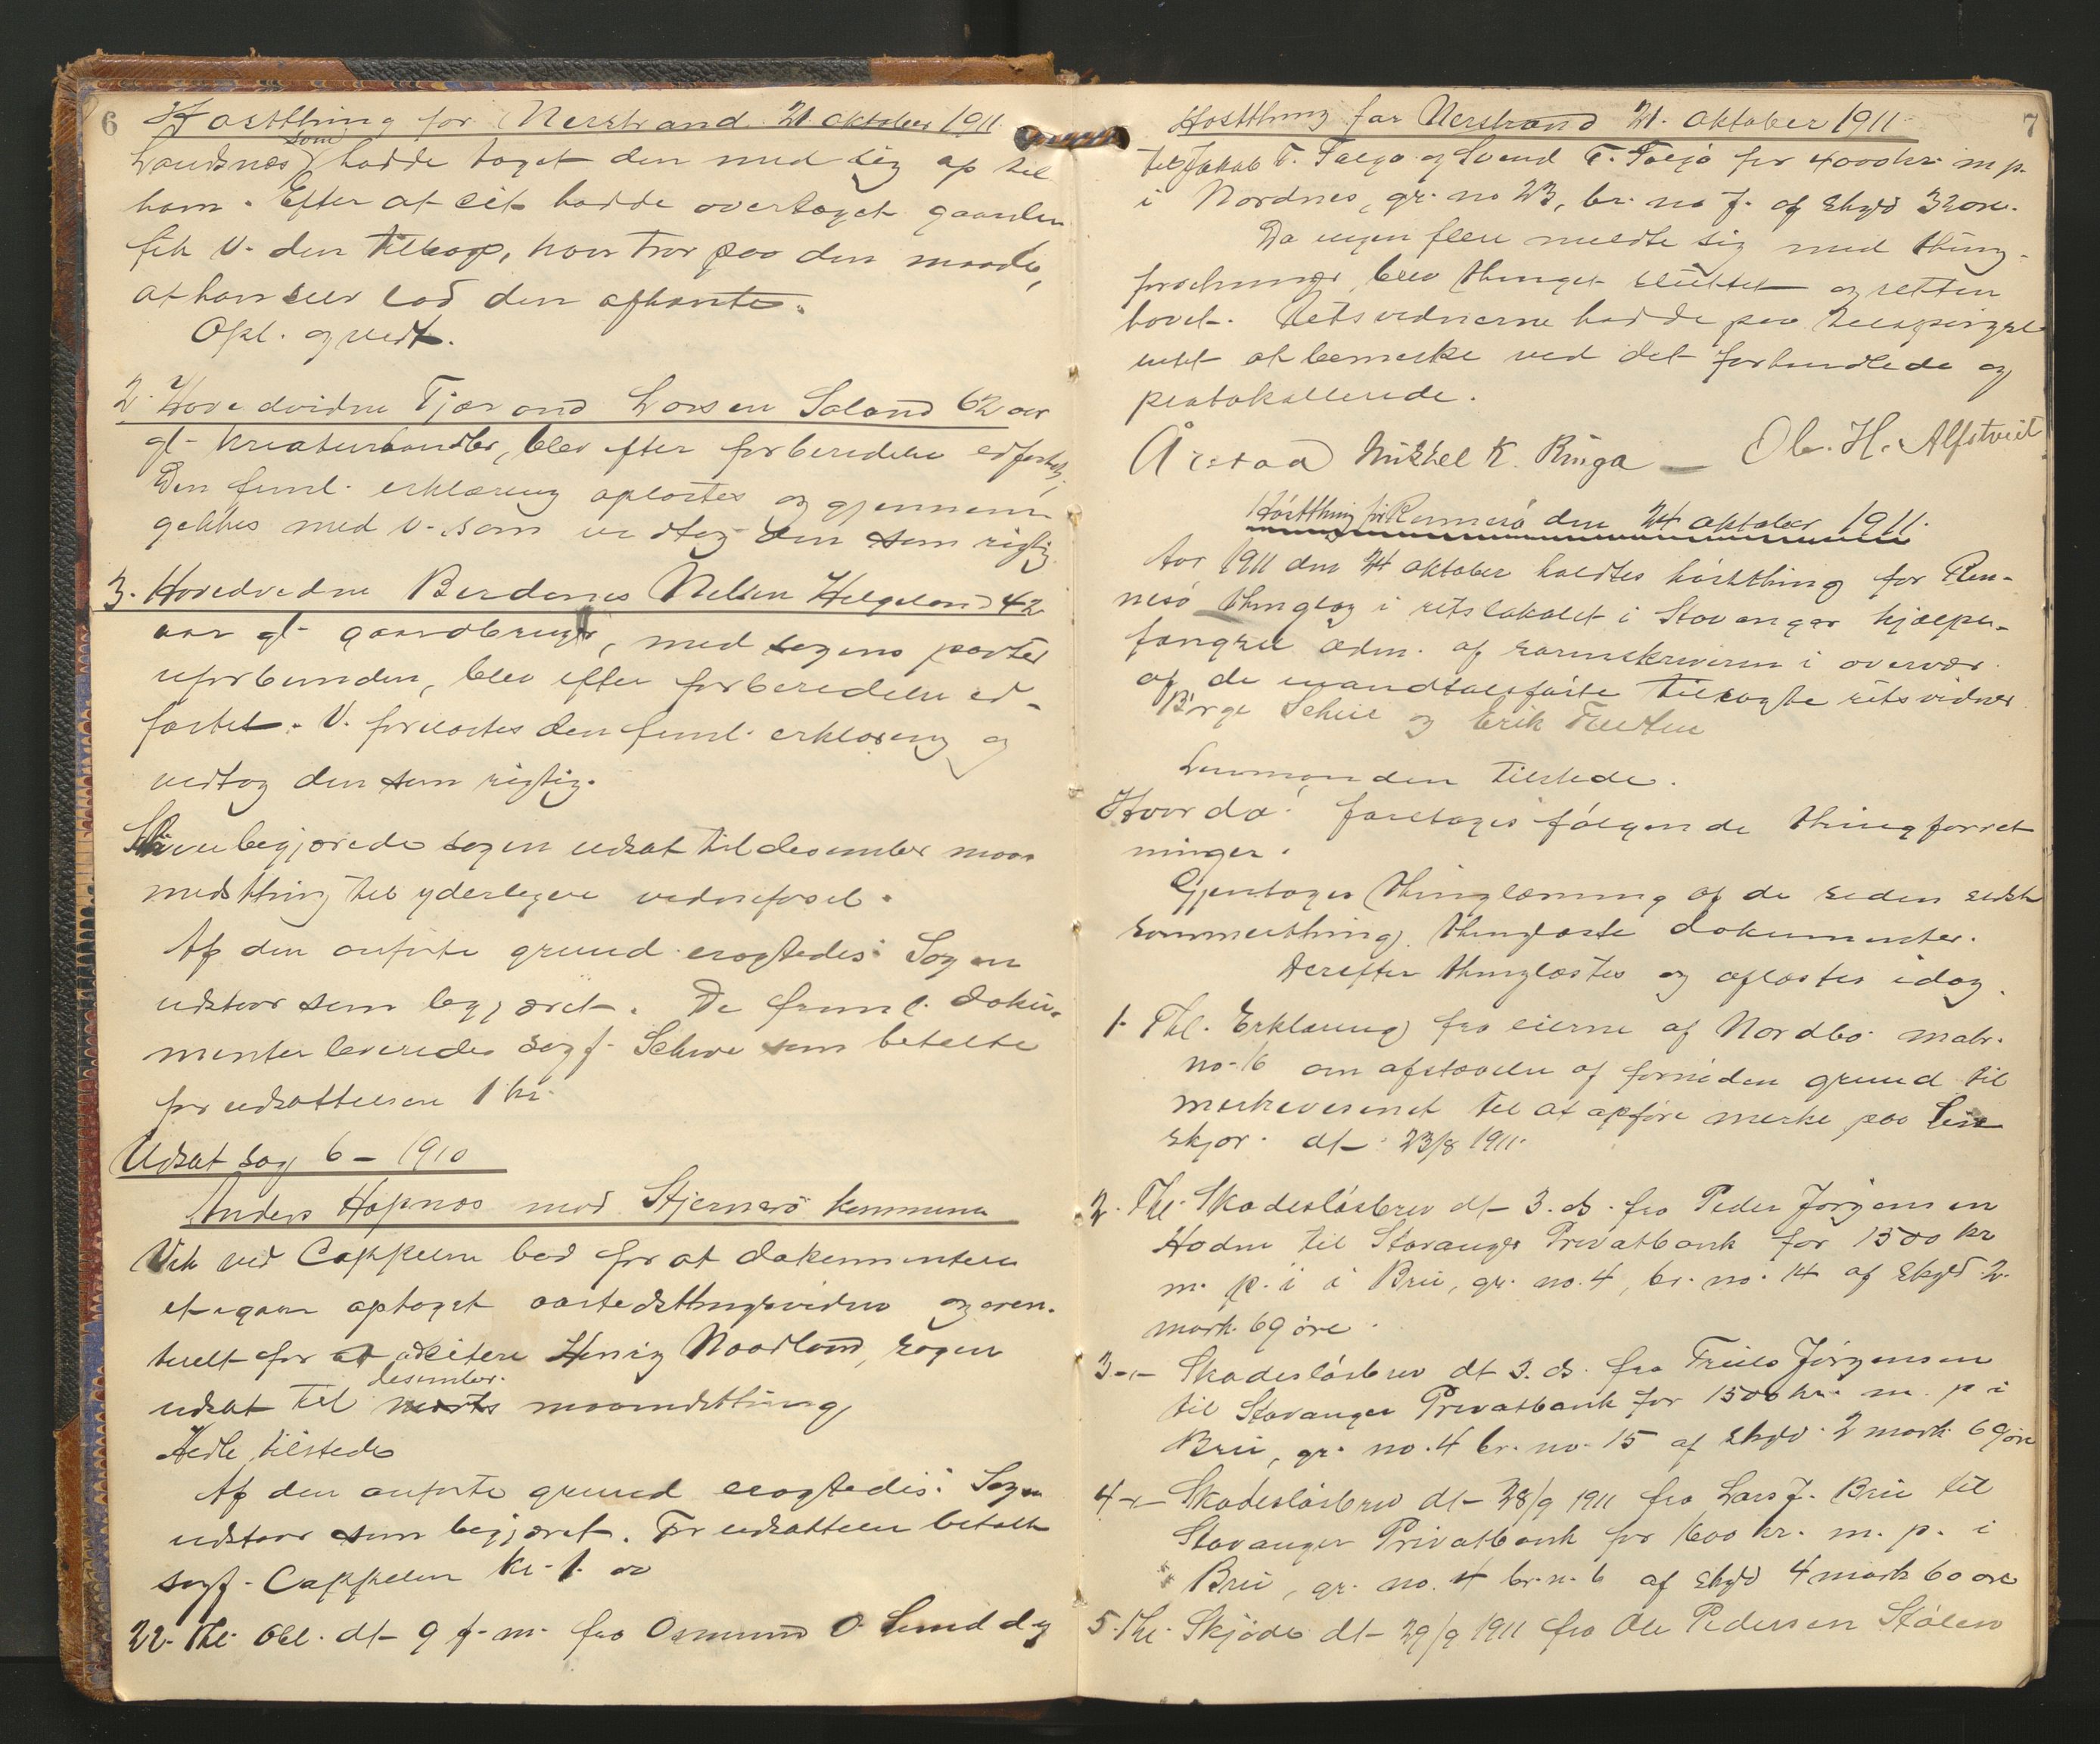 6
Høstthing for Nerstrand 21 oktober 1911.
Landsnes som hadde taget den med sig op til
ham. Efter at cit. hadde overtaget gaarden
fik V. den tilbage, han tror paa den maade,
at han selv lod den afhente.
Opl. og vedt.
2. Hovedvidne Tjærand Larsen Soland 62 aar
gl. kreaturhandler, blev efter forberedelse edfæstet,
Den feml. erklæring oplæstes og gjennem
gikkes med V. som vedtog den som rigtig
3. Hovedvidne Berdenes Nelsen Helgeland 42
aar gl. gaardbruger, med sagens parter
uforbunden, blev efter forberedelse ed-
fæstet. V. forelæstes den feml. erklæring og
vedtog den som rigtig.
Schive begjærede sagen udsat til desember maa
nedsthing til yderligere vidneførsel.
Af den anførte grund eragtedes: Sagen
udstaar som begjæret. De freml. doku-
menter leveredes sagf. Schive som betalte
for udsættelsen 1 kr.
Udsat sag 6 - 1910
Anders Hapnes mod Stjernerø kommune
Vik ved Cappelen bad for at dokumentere
et igaar optaget aastedsthingsvidne og even-
tuelt for at adcitere Henrig Naadland, sagen
desember.
udsat til marts maanedsthing
Hedle tilstede
Af den anførte grund eragtedes: Sagen
udstaar som begjæret. For udsættelsen betalte
sagf. Cappelen kr. 1.00
22. Thl. Obl. dt. 9 f. m. fra Osmund O. Lunddey
7
Høstthing for Nerstrand 21. oktober 1911.
til Jakob T. Falgø og Svend T. Falgø for 4000 kr. m p.
i Nordnes, gr. no 23, br. no 7. af skyld 32 øre.
Da ingen flere meldte sig med thing-
forretninger, blev thinget sluttet og retten
hævet. Retsvidnerne hadde paa tilspørgsel
intet at bemerke ved det forhandlede og
protokollerede.
Årstad Mikkel K. Ringa — Ole. H. Alfstveit
Høstthing for Rennesø den 24 oktober 1911.
Aar 1911 den 24 oktober holdtes høstthing for Ren-
nesø thinglag i retslokalet i Stavanger hjælpe-
fængsel adm. af sorenskriveren i overvær
af de mandtalsførte tilsagte retsvidner
Børge Schie og Erik
Lensmanden tilstede.
Hvorda: foretages følgende thingforret
ninger.
Gjentages thinglæsning af de siden sidste
sommerthing thinglæste dokumenter.
Derefter thinglæstes og aflæstes idag.
1. Thl. Erklæring fra eierne af Nordbø matr.
no. 16 om afstaaelse af fornøden grund til
merkevesenet til at opføre merke paa
skjær. dt. 23/8 1911.
2. Thl. Skadesløsbrev dt. 3. ds. fra Peder Jørgensen
Hodne til Stavanger Privatbank for 1500 kr
m. p. i i Brue, gr. no. 4, br. no. 14 af skyld 2.
mark 69 øre.
3 -„- Skadesløsbrev dt 3. ds. fra Jørgensen
til Stavanger Privatbank for 1500 kr. m. p i
Brue, gr. no. 4 br. no. 15 af skyld 2 mark 69 øre
4 -„- Skadesløsbrev dt. 28/9 1911 fra Lars J. Brue til
Stavanger Privatbank for 1600 kr. m. p. i
Brue, gr. no. 4 br. n. 6 af skyld 4 mark 60 øre
5. Thl. Skjøde dt. 29/9 1911 fra Ole Pedersen Stølen